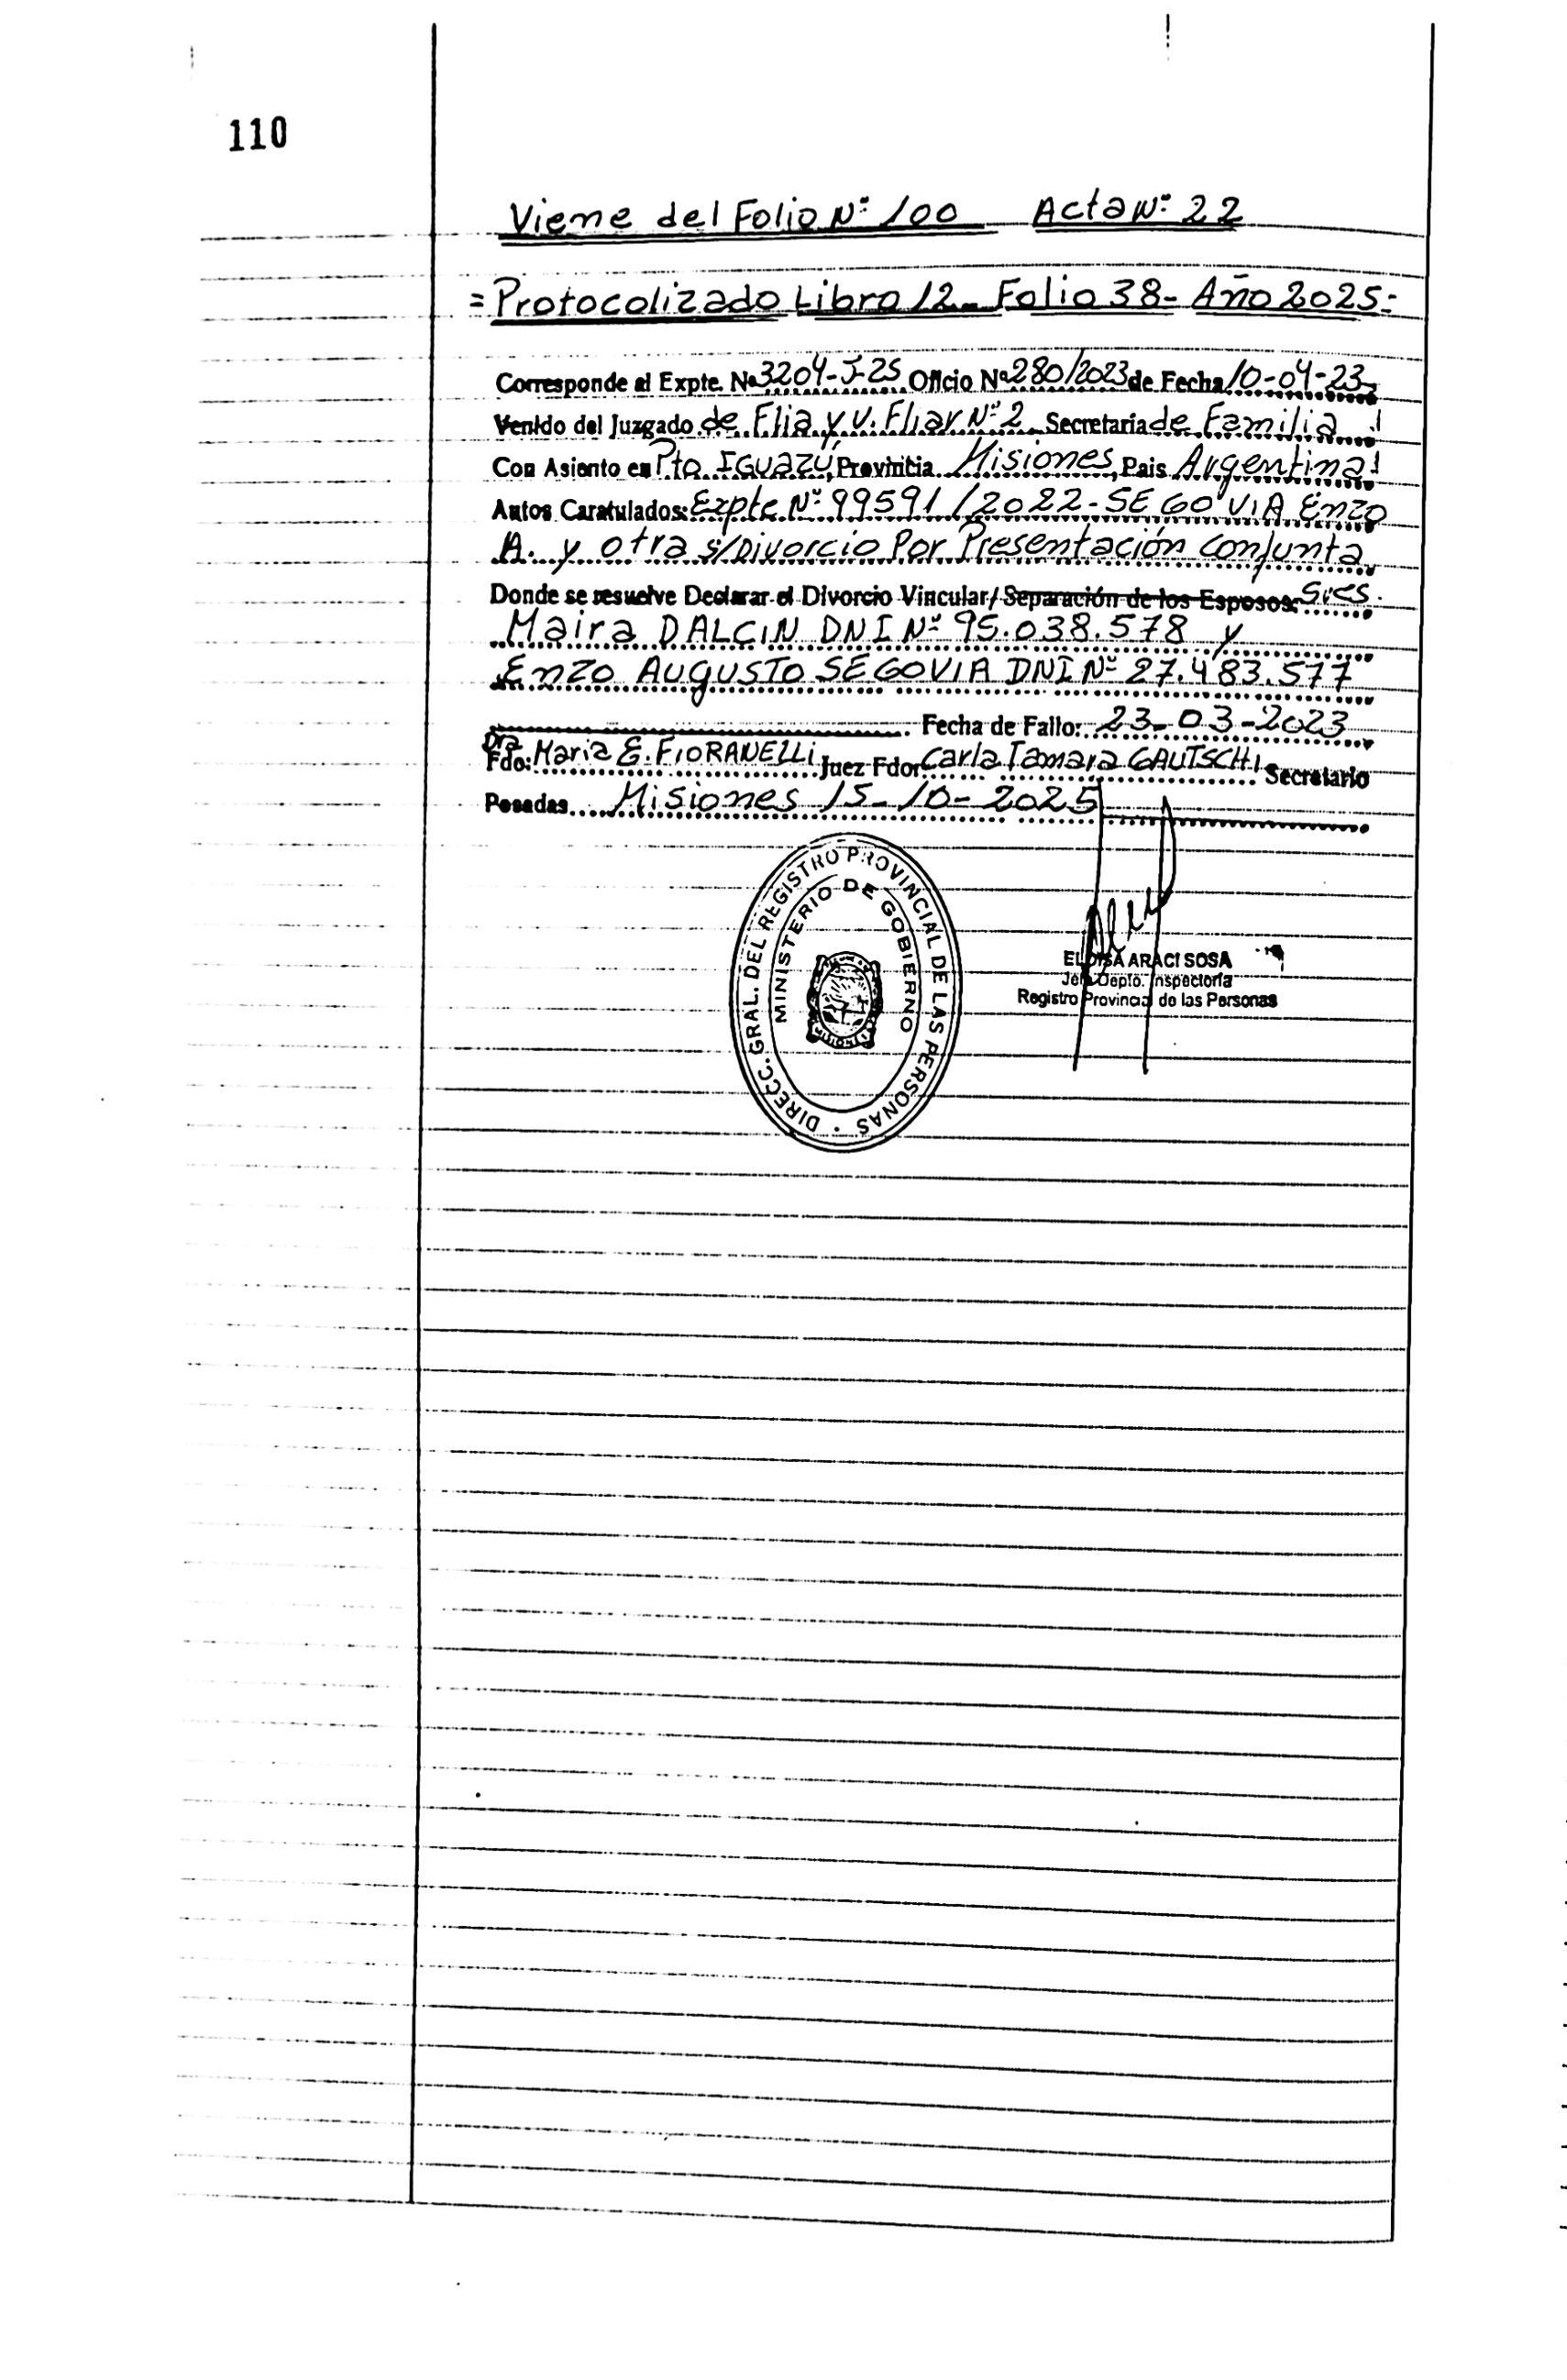 110
Viene del Folio Nº 100 Acta Nº 22
= Protocolizado Libro 12 - Folio 38 - Año 2025 =
Corresponde al Expte. Nº 3204-J-25 Oficio Nº 280/2023 de Fecha 10-04-23
Venido del Juzgado de Flia y V. Fliar Nº 2 Secretaria de Familia
Con Asiento en Pto IGUAZÚ, Provincia Misiones, Pais Argentina
Autos Caratulados: Expte Nº 99591/2022 - SEGOVIA Enzo
A. y otra s/Divorcio Por Presentación conjunta
Donde se resuelve Declarar el Divorcio Vincular / Separación de los Esposos: Sres.
Maira DALCIN DNI Nº 95.038.578 y
Enzo AUGUSTO SEGOVIA DNI Nº 27.483.577
Fecha de Fallo: 23-03-2023
Fdo: Dra Maria E. FIORANELLI Juez Fdo: Carla Tamara GAUTSCHI Secretario
Posadas Misiones 15-10-2025
DIRECC. GRAL. DEL REGISTRO PROVINCIAL DE LAS PERSONAS
MINISTERIO DE GOBIERNO
ELOISA ARACI SOSA
Jefa Depto. Inspectoria
Registro Provincial de las Personas